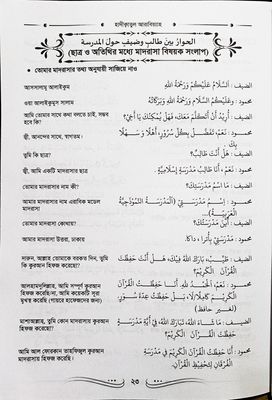 হাদীকাতুল আরাবিয়্যাহ
الحوار بين طالب وضيف حول المدرسة
(ছাত্র ও অতিথির মধ্যে মাদরাসা বিষয়ক সংলাপ)
তোমার মাদরাসার তথ্য অনুযায়ী সাজিয়ে নাও
আসসালামু আলাইকুম
الضيف : اَلسَّلَامُ عَلَيْكُمْ وَرَحْمَةُ اللهِ
ওয়া আলাইকুমুস সালাম
محمود : وَعَلَيْكُمُ السَّلَامُ وَرَحْمَةُ اللهِ وَبَرَكَاتُهُ
আমি তোমার সাথে কথা বলতে চাই, সম্ভব হবে কি?
الضيف : أُرِيدُ أَنْ أَتَكَلَّمَ مَعَكَ، فَهَلْ يُمْكِنُكَ يَا أَخِيْ؟
জ্বী, আনন্দের সাথে, স্বাগতম।
محمود : نَعَمْ، تَفَضَّلْ بِكُلِّ سُرُوْرٍ، أَهْلًا وَ سَهْلًا
তুমি কি ছাত্র?
الضيف : هَلْ أَنْتَ طَالِبٌ؟
জ্বী, আমি একটি মাদরাসার ছাত্র
محمود : نَعَمْ، أَنَا طَالِبُ مَدْرَسَةٍ إِسْلَامِيَّةٍ
তোমার মাদরাসার নাম কী?
الضيف : مَا اسْمُ مَدْرَسَتِكَ؟
আমার মাদরাসার নাম এরাবিক মডেল মাদরাসা
محمود : اِسْمُ مَدْرَسَتِيْ (اَلْمَدْرَسَةُ النَّمُوْذَجِيَّةُ الْعَرَبِيَّةُ)
তোমার মাদরাসা কোথায়?
الضيف : أَيْنَ مَدْرَسَتُكَ؟
আমার মাদরাসা উত্তরা, ঢাকায়
محمود : مَدْرَسَتِيْ بِأُتَرَا ، دَاكَا.
দারুন, আল্লাহ তোমাকে বরকত দিন, তুমি কি কুরআন হিফজ করেছো?
الضيف : طَيِّب، بَارَكَ اللهُ فِيْكَ، هَلْ أَنْتَ حَفِظْتَ الْقُرْآنَ الْكَرِيْمَ؟
আলহামদুলিল্লাহ, আমি সম্পূর্ণ কুরআন হিফজ করেছি/না, আমি কয়েকটি সূরা মুখস্থ করেছি (গায়রে হাফেজদের জন্য)
محمود : نَعَمْ، اَلْحَمْدُ لِلّٰهِ، أَنَا حَفِظْتُ الْقُرْآنَ الْكَرِيْمَ كَامِلًا/لَا، بَلْ حَفِظْتُ عِدَّةَ سُوَرٍ، (لغير حافظ)
মাশাআল্লাহ, তুমি কোন মাদরাসায় কুরআন হিফজ করেছো?
الضيف : مَا شَاءَ اللهُ، بَارَكَ اللهُ فِيْكَ، فِيْ أَيَّةِ مَدْرَسَةٍ حَفِظْتَ الْقُرْآنَ الْكَرِيْمَ؟
আমি আল ফোরকান তাহফিজুল কুরআন মাদরাসায় হিফজ করেছি।
محمود : أَنَا حَفِظْتُ الْقُرْآنَ الْكَرِيْمَ فِيْ مَدْرَسَةِ الْفُرْقَانِ لِتَحْفِيْظِ الْقُرْآنِ الْكَرِيْمِ.
২৩